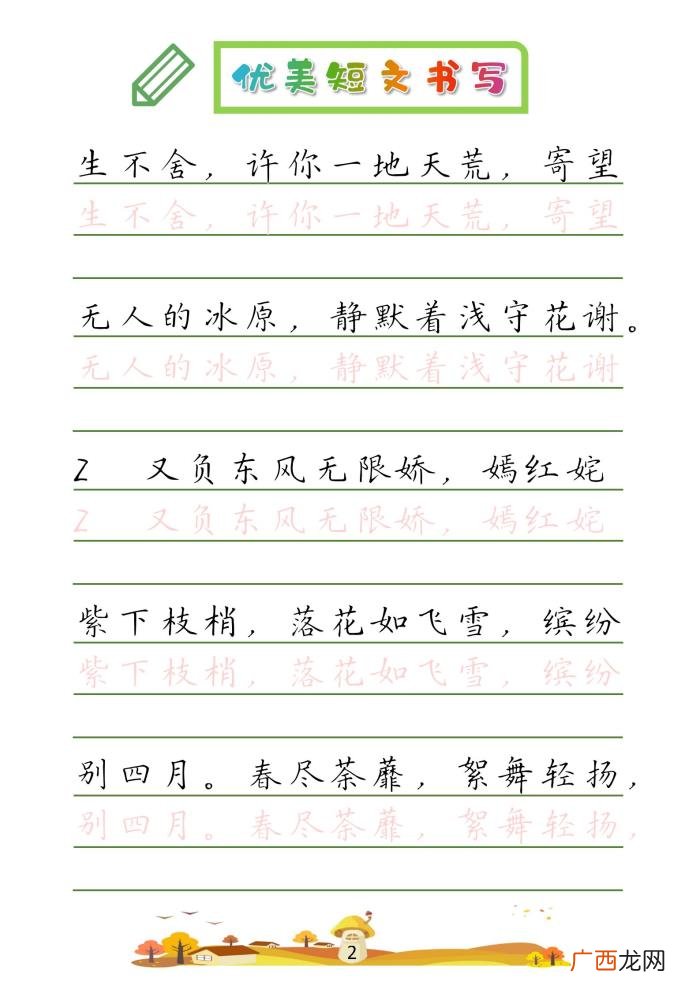 优美短文书写
生不舍，许你一地天荒，寄望
生不舍，许你一地天荒，寄望
无人的冰原，静默着浅守花谢。
无人的冰原，静默着浅守花谢
2 又负东风无限娇，嫣红姹
2 又负东风无限娇，嫣红姹
紫下枝梢，落花如飞雪，缤纷
紫下枝梢，落花如飞雪，缤纷
别四月。春尽荼蘼，絮舞轻扬，
别四月。春尽荼蘼，絮舞轻扬，
2
广西龙网